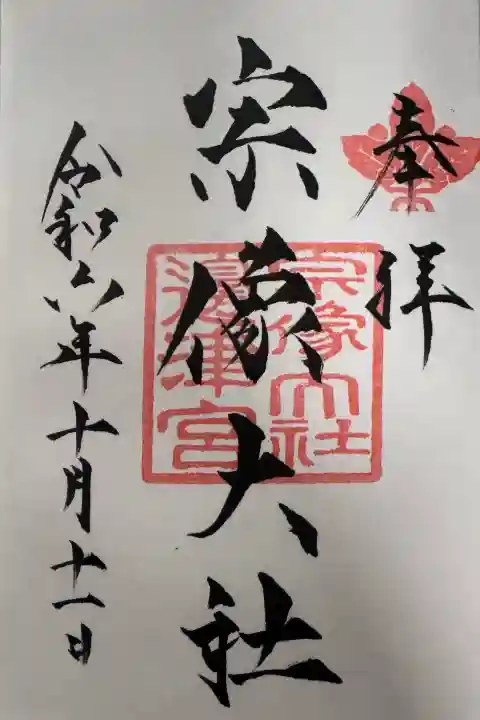 奉拝
宗像大社
宗像大社
邊津宮
令和六年十月十一日